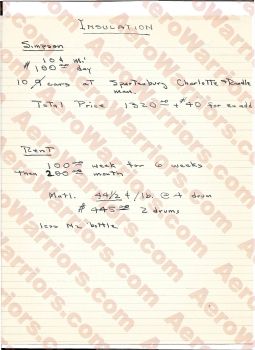 INSULATION
Simpson
10¢ mi
$100.00 day
10 cars at Spartanburg Charlotte & Randle
man.
Total Price 1320.00 + $40 for ea add
RENT
100.00 week for 6 weeks
then 200.00 month
Matl. 44½ ¢/lb. @ 4 drum
$445.00 2 drums
less N2 bottle
AeroWarriors.com